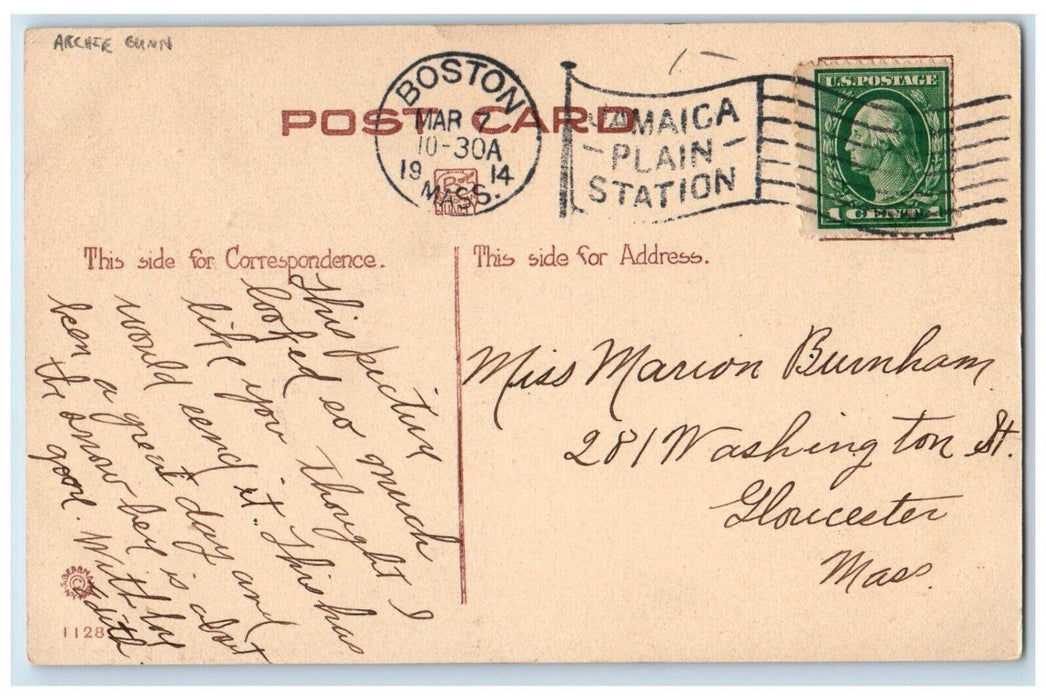 ARCHIE GUNN
POST CARD
BOSTON
MAR 7
10-30A
19 14
MASS.
JAMAICA
PLAIN
STATION
U.S. POSTAGE
1 CENT 1
This side for Correspondence.
This side for Address.
This picture
looked so much
like you thought I
would send it. This has
been a great day and
the snow here is about
gone. With love
Edith.
Miss Marion Burnham
281 Washington St.
Gloucester
Mass.
1128